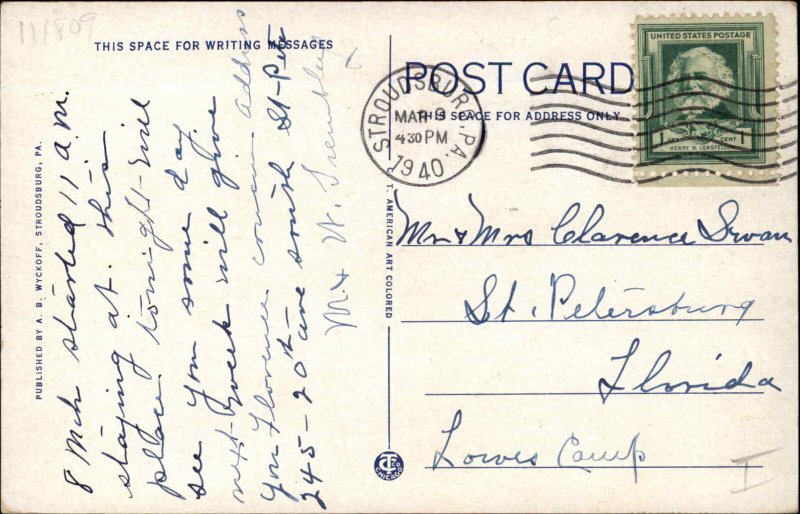 111809
THIS SPACE FOR WRITING MESSAGES
POST CARD
THIS SPACE FOR ADDRESS ONLY
UNITED STATES POSTAGE
1 CENT 1
HENRY W. LONGFELLOW
STROUDSBURG, PA.
MAR 9
4 30 PM
1940
PUBLISHED BY A. B. WYCKOFF, STROUDSBURG, PA.
8 Mch started 11 a.m.
staying at this
place tonight-will
see you some day
next week will give
you Florence cousin address
245-20th ave south St-Pete
M. & W. Trembley
C. T. AMERICAN ART COLORED
Mr & Mrs Clarence Swan
St. Petersburg
Florida
Lowes Camp
CHICAGO
I